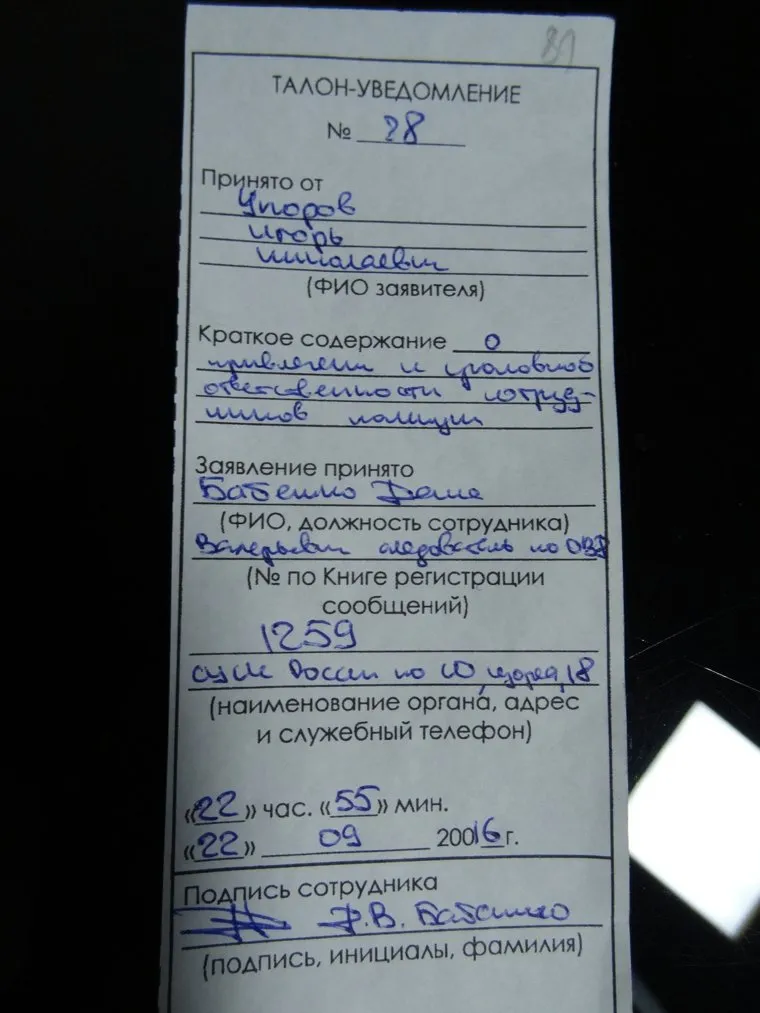 ТАЛОН-УВЕДОМЛЕНИЕ
№ 28
Принято от
Упоров
Игорь
Николаевич
(ФИО заявителя)
Краткое содержание о
привлечении к уголовной
ответственности сотруд-
ников полиции
Заявление принято
Бабенко
(ФИО, должность сотрудника)
Валерьевич следователь по ОВД
(№ по Книге регистрации
сообщений)
1259
СУ СК России по СО, 18
(наименование органа, адрес
и служебный телефон)
«22» час. «55» мин.
«22» 09 20016 г.
Подпись сотрудника
В. Бабенко
(подпись, инициалы, фамилия)